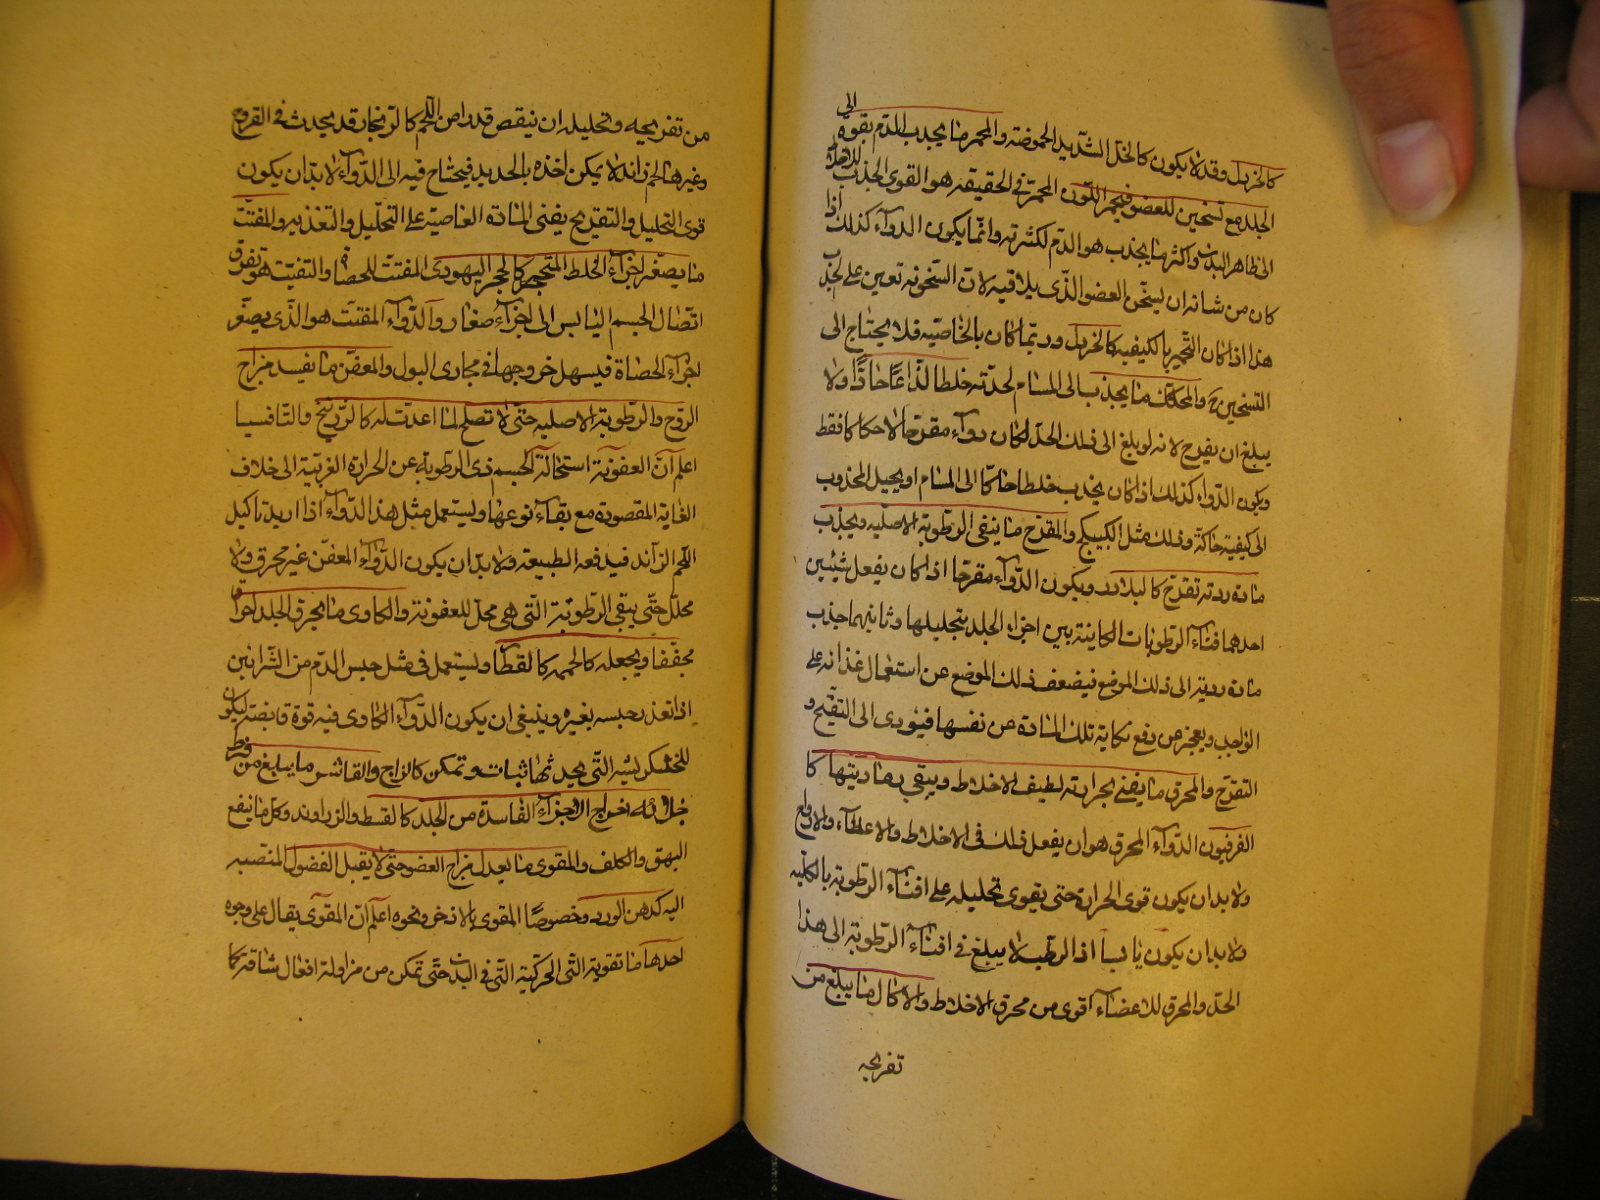 كالخردل وقد لا يكون كالخل الشديد الحموضة والمحمر ما يجذب الدم بقوة الى
الجلد مع تسخين للعضو فيحمر اللون المحمر في الحقيقة هو القوى الجذب
الى ظاهر البدن واكثر ما يجذب هو الدم لكثرته وانما يكون الدوآء كذلك اذا
كان من شانه ان يسخن العضو الذى يلاقيه لان السخونة تعين على الجذب
هذا اذا كان التحمير بالكيفية كالخردل وربما كان بالخاصية فلا يحتاج الى
التسخين والمحكك ما يجذب الى المسام لحدته خلطا لذاعا حادا ولا
يبلغ ان يقرح لانه لو بلغ الى ذلك الحد لكان دوآء مقرحا لا حكاكا فقط
ويكون الدواء كذلك اذا كان يجذب خلطا حاكا الى المسام او يحيل المجذوب
الى كيفية حاكة وذلك مثل الكبيكج والمقرح ما ينفى الرطوبة الاصلية ويجذب
مادة ردية تقدح كالبلادر ويكون الدوآء مقرحا اذا كان يفعل شيئين
احدهما افناء الرطوبات الكاينة بين اجزاء الجلد بتحليلها وثانيهما جذب
مادة ردية الى ذلك الموضع فيضعف ذلك الموضع عن استعمال غذائه على
الواجب ويعجز عن دفع نكاية تلك المادة عن نفسها فيؤدى الى التقيح و
التقرح والمحرق ما يفنى بحرارته لطيف الاخلاط ويبقى رماديتها كا
الفرفيون الدوآء المحرق هو ان يفعل ذلك فى الاخلاط والاعضاء والارواح
ولا بد ان يكون قوى الحرارة حتى يقوى تحليله على افناء الرطوبة بالكلية
ولا بد ان يكون يابسا اذ الرطب لا يبلغ فى افناء الرطوبة الى هذا
الحد والمحرق للاعضاء اقوى من محرق الاخلاط والاكال ما يبلغ من
تفريحه
من تفريحه وتحليله ان ينقص قدرا من اللحم كالزنجار قد يحدث فى القروح
وغيرها لحم زائد لا يمكن اخذه بالحديد فيحتاج فيه الى الدوآء لا بد ان يكون
قوى التحليل والتقريح يفنى المادة العاصية على التحليل والتغذية والمفتت
ما يصغر اجزاء الخلط المتحجر كالحجر اليهودى المفتت للحصاة والتفتيت هو تفرق
اتصال الجسم اليابس الى اجزآء صغار والدوآء المفتت هو الذى يصغر
اجزاء الحصاة فيسهل خروجها فى مجارى البول والمعفن ما يفسد مزاج
الروح والرطوبة الاصلية حتى لا تصلح لما اعدت له كالزرنيخ والتافسيا
اعلم ان العفونة استحالة الجسم ذى الرطوبة عن الحرارة الغريبة الى خلاف
الغاية المقصودة مع بقاء نوعها ويستعمل مثل هذا الدوآء اذا اريد تاكيل
اللحم الزائد فيدفعه الطبيعة ولا بد ان يكون الدوآء المعفن غير محرق ولا
محلل حتى يبقى الرطوبة التى هى محل للعفونة والكاوى ما يحرق الجلد احراقا
مجففا ويجعله كالحممة كالقطا ويستعمل فى مثل حبس الدم من الشرايين
اذا تعذر حبسه بغيره وينبغى ان يكون الدوآء الكاوى فيه قوة قابضة ليكون
للخشكريشه التى يحدثها ثبات وتمكن كالزاج والقاشر ما يبلغ من فرط
جلائه اخراج الاجزآء الفاسدة من الجلد كالقسط والزراوند وكل ما ينفع
البهق والكلف والمقوى ما يعدل مزاج العضو حتى لا يقبل الفضول المنصبة
اليه كدهن الورد وخصوصا المقوى بالاذخر ونحوه اعلم ان المقوى يقال على وجوه
احدها ما تقوية التى الحركية التى فى البدن حتى تمكن من مزاولة افعال شاقة كما